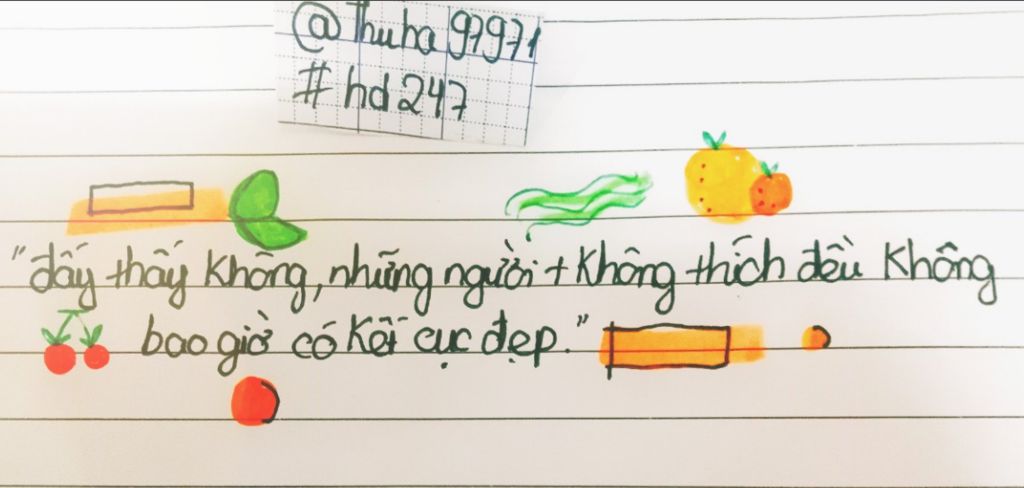 @thuha97971
#hd247
"đấy thấy không, những người t không thích đều không
bao giờ có kết cục đẹp."